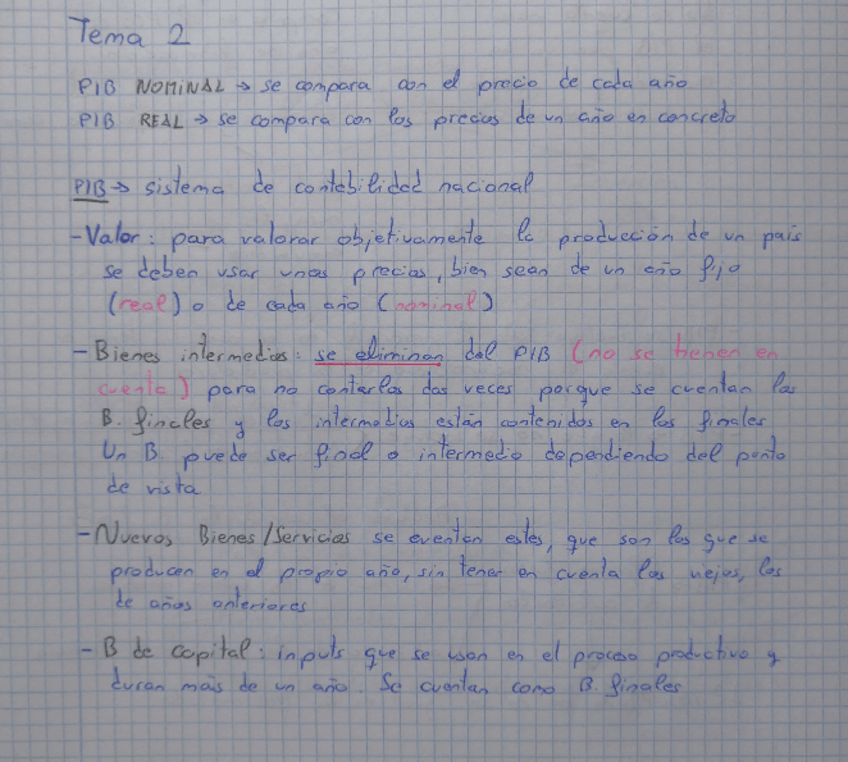 Tema 2
PIB NOMINAL → se compara con el precio de cada año
PIB REAL → se compara con los precios de un año en concreto
PIB → sistema de contabilidad nacional
- Valor: para valorar objetivamente la producción de un país
se deben usar unos precios, bien sean de un año fijo
(real) o de cada año (nominal)
- Bienes intermedios: se eliminan del PIB (no se tienen en
cuenta) para no contarlos dos veces porque se cuentan los
B. finales y los intermedios están contenidos en los finales
Un B. puede ser final o intermedio dependiendo del punto
de vista
- Nuevos Bienes/Servicios se cuentan estos, que son los que se
producen en el propio año, sin tener en cuenta los viejos, los
de años anteriores
- B de capital: inputs que se usan en el proceso productivo y
duran más de un año. Se cuentan como B. finales